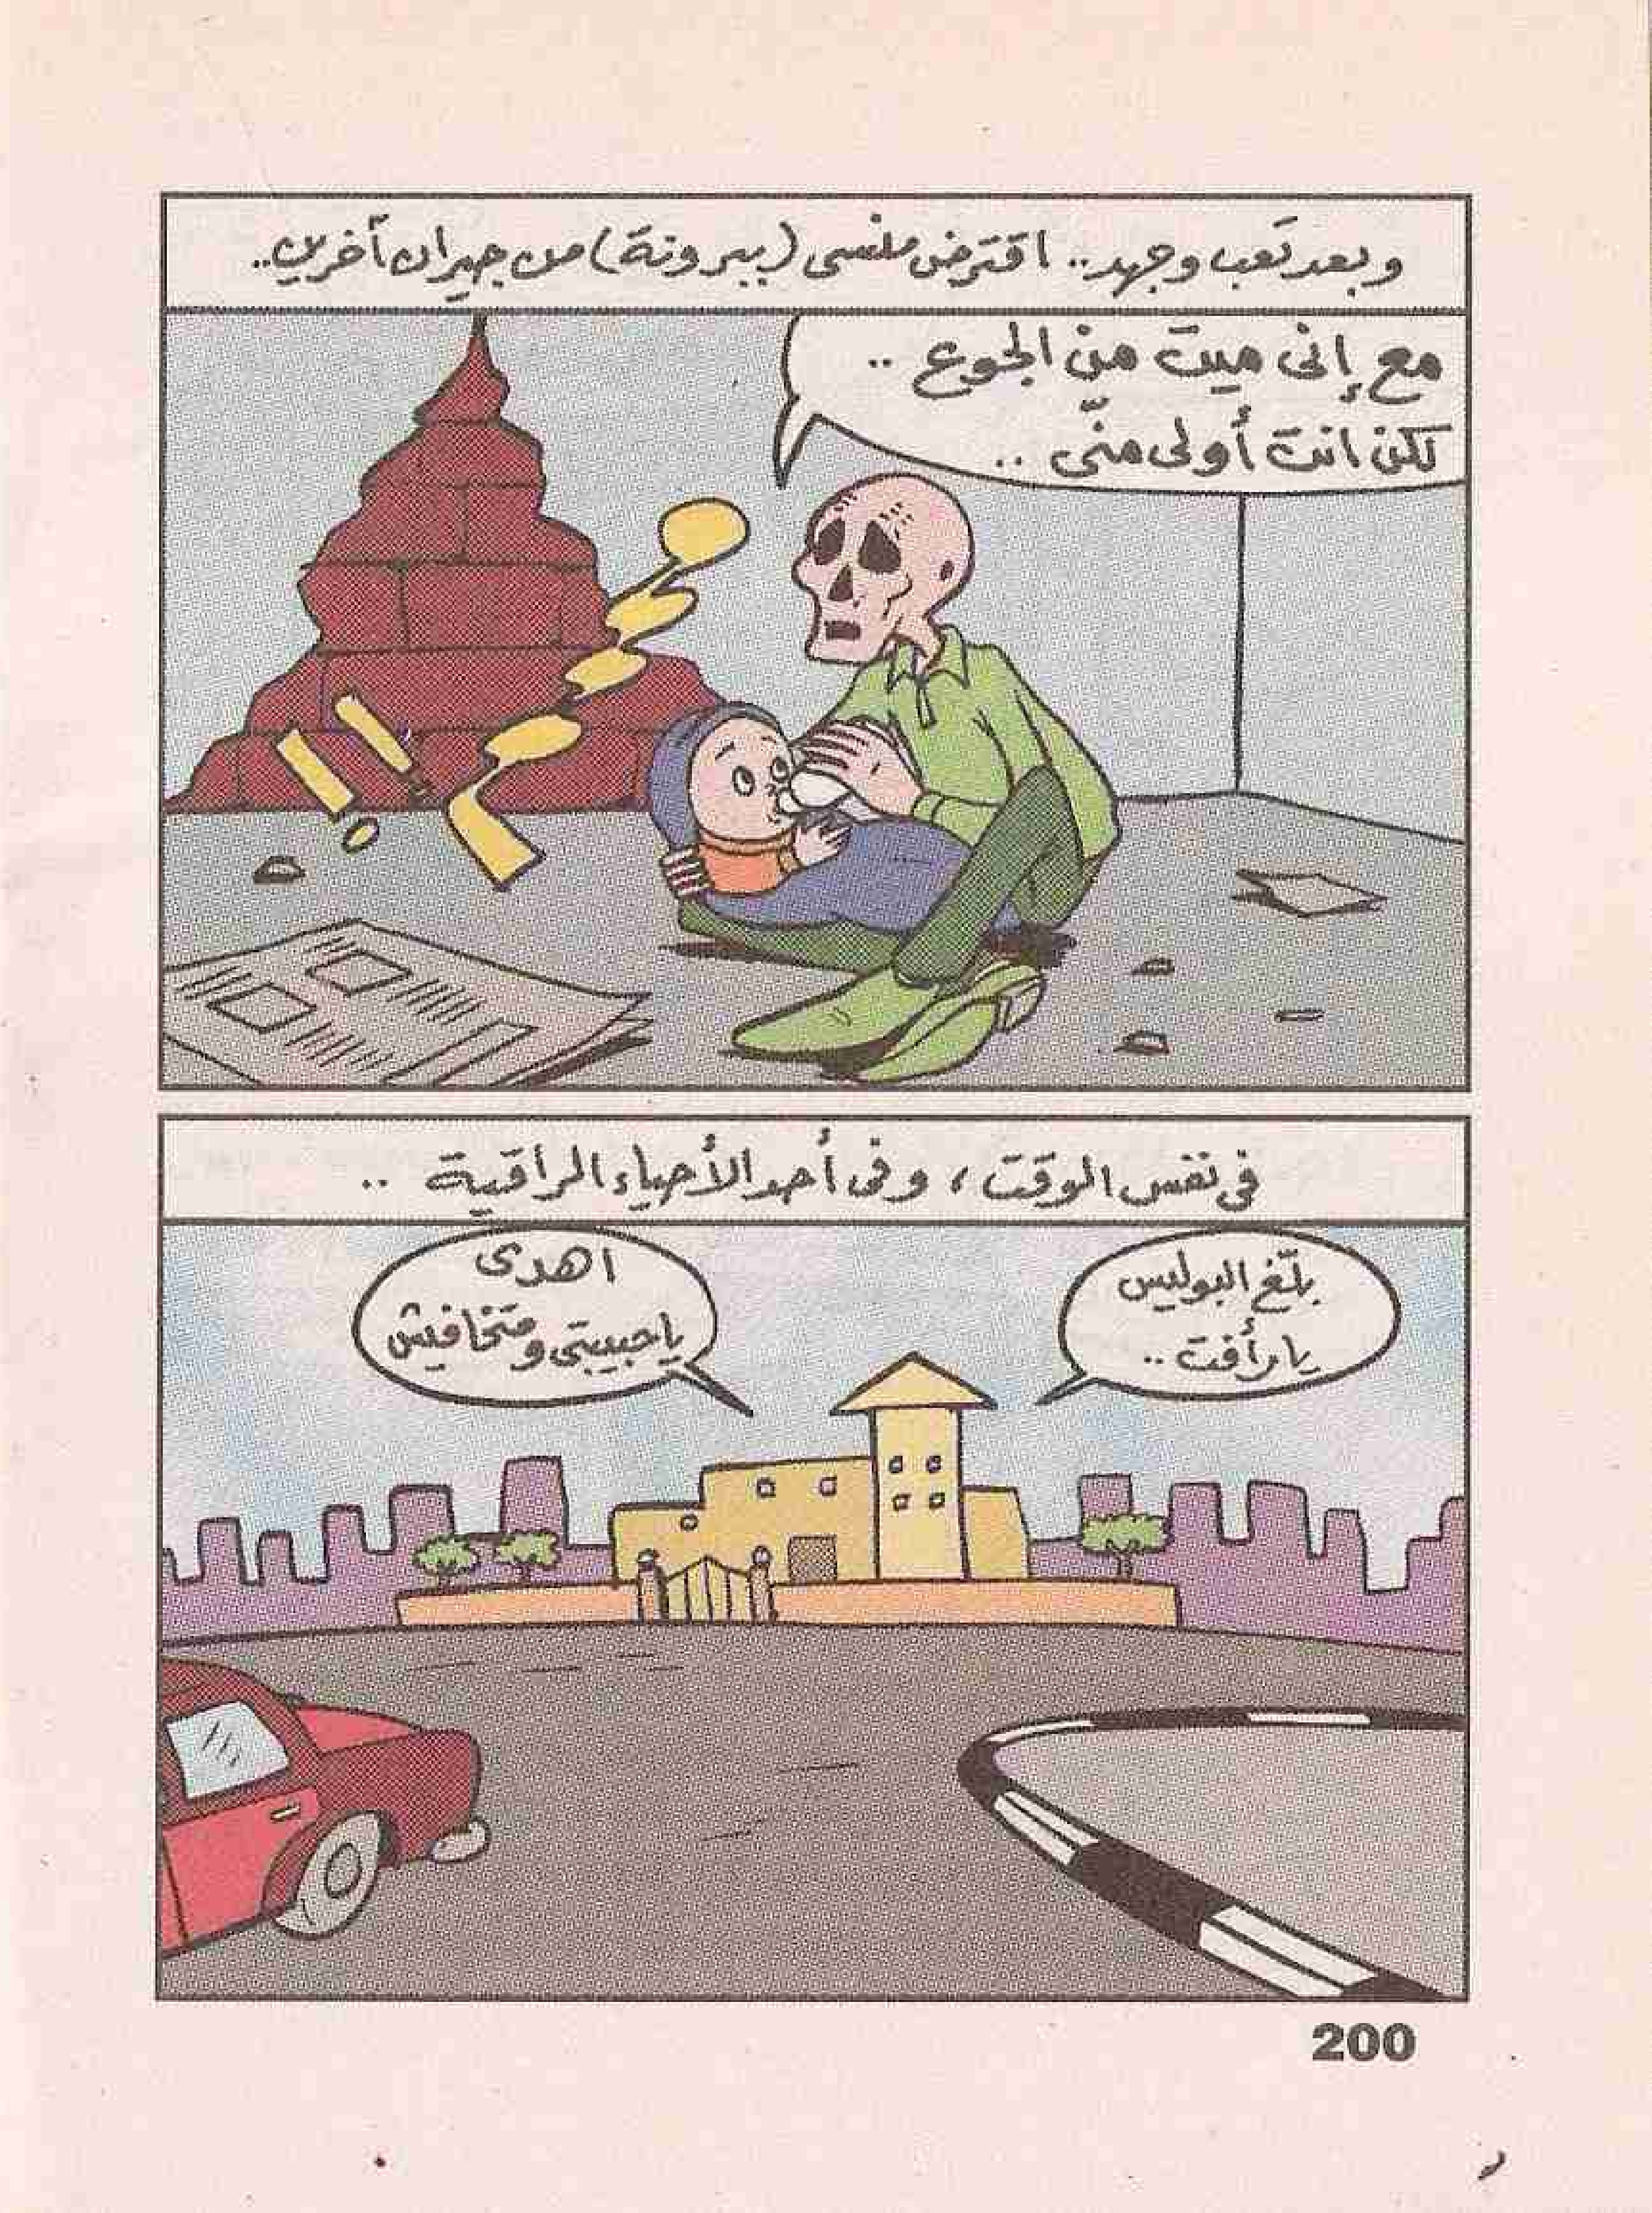 وبعد تعب وجهد.. اقترض منسى (ببرونة) من جيران آخرين..
مع إنى ميت من الجوع ..
لكن انت أولى منّى ..
فى نفس الوقت، وفى أحد الأحياء الراقية ..
بلّغ البوليس
يا رأفت ..
اهدى
يا حبيبتى ومتخافيش
200